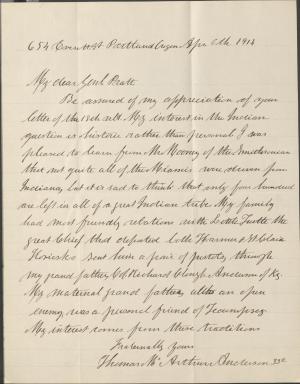 654 Everett St Portland Oregon Apr 6th 1914
My dear Genl Pratt
Be assured of my appreciation of your
letter of the 18th ult. My interest in the Indian
question is historic rather than personal. I was
pleased to learn from Mr Mooney of the Smithsonian
that not quite all of the Miamis were driven from
Indiana, but it is sad to think that only four hundred
are left in all of a great Indian tribe. My family
had most friendly relations with Little Turtle the
great Chief that defeated both Harmar & St Clair
Kosciusko sent him a pair of pistols through
my grand father, Col Richard Clough Anderson of Ky.
My maternal grand father, while an open
enemy, was a personal friend of Tecumseh
My interest comes from these traditions
Fraternally Yours
Thomas McArthur Anderson